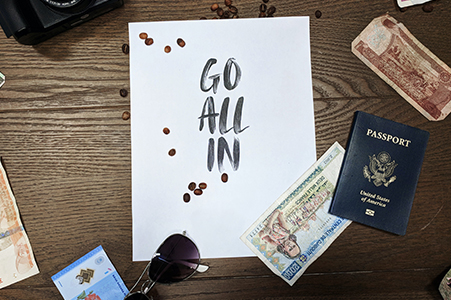 GO
ALL
IN
PASSPORT
United States
of America